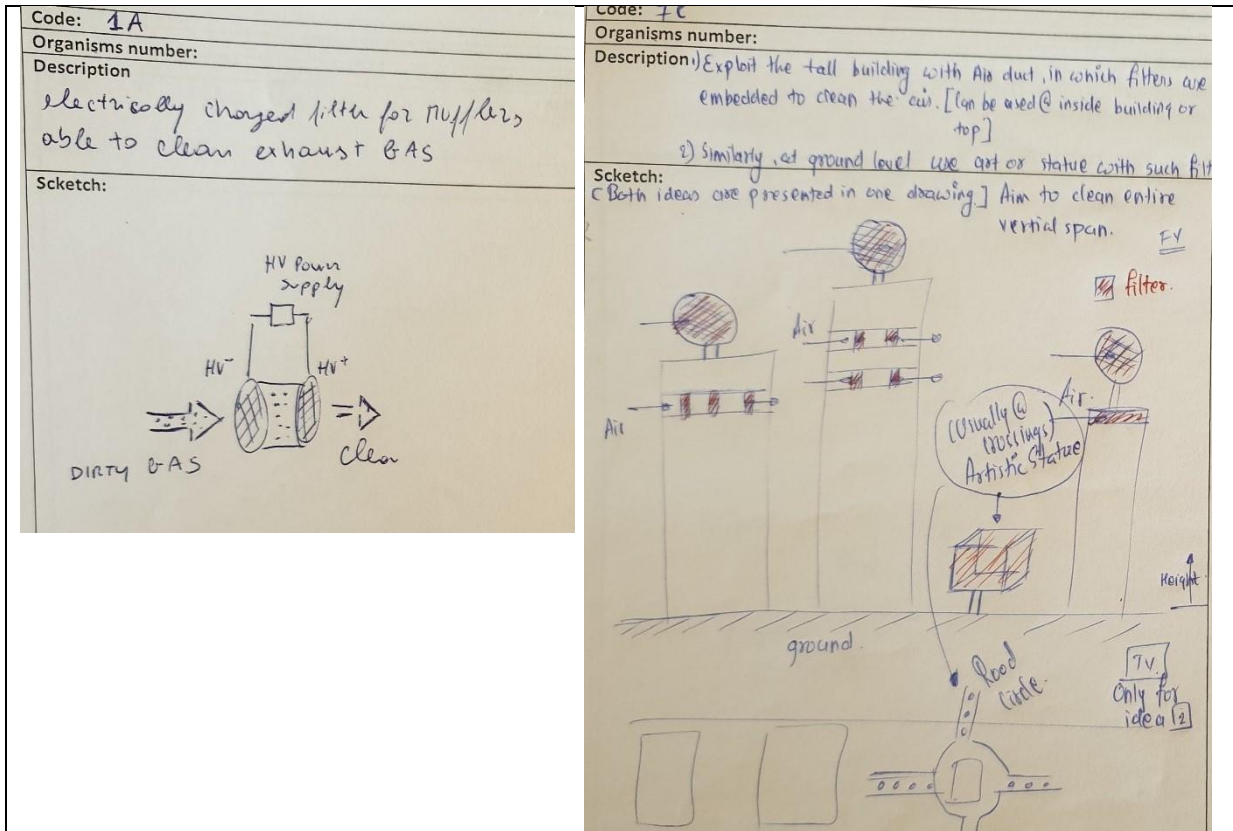 Code: 1A
Organisms number:
Description
electrically charged filter for Mufflers
able to clean exhaust GAS
Scketch:
HV Power
supply
HV-
HV+
DIRTY GAS
Clean
Code: 7C
Organisms number:
Description 1) Exploit the tall building with Air duct, in which filters are
embedded to clean the air. [Can be used @ inside building or
top]
2) Similarly, at ground level use art or statue with such filt
Scketch:
[Both ideas are presented in one drawing.] Aim to clean entire
vertial span.
FV
filter.
Air
Air
Air.
(Usually @
crossings)
Artistic Statue
Height
ground.
Road
Circle.
TV.
Only for
idea 2